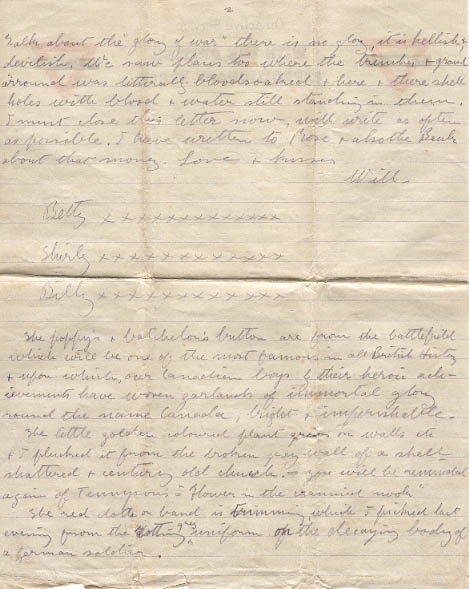 2
Talk about the "glory of war" there is no glory, it is hellish &
devilish. We saw places too where the trenches & ground
arround was litterally bloodsoaked & here & there shell
holes with blood & water still standing in them.
I must close this letter now, will write as often
as possible. I have written to Rose & also the Bank
about that money. Love & kisses
Will
Betty x x x x x x x x x x x x x x
Shirly x x x x x x x x x x x x x x
Billy x x x x x x x x x x x x x x
The poppys & batchelor's button are from the battlefield
which will be one of the most famous in all British History
& upon which, our Canadian boys by their heroic ach-
ievements have woven garlands of immortal glory
round the name Canada, bright & imperishable.
The little golden coloured plant grows on walls etc
& I plucked it from the broken grey wall of a shell
shattered & century old church. — you will be reminded
again of Tennyson's "Flower in the crannied nook"
The red cloth or band is trimming which I picked last
evening from the rotting grey uniform on the decaying body of
a german soldier.